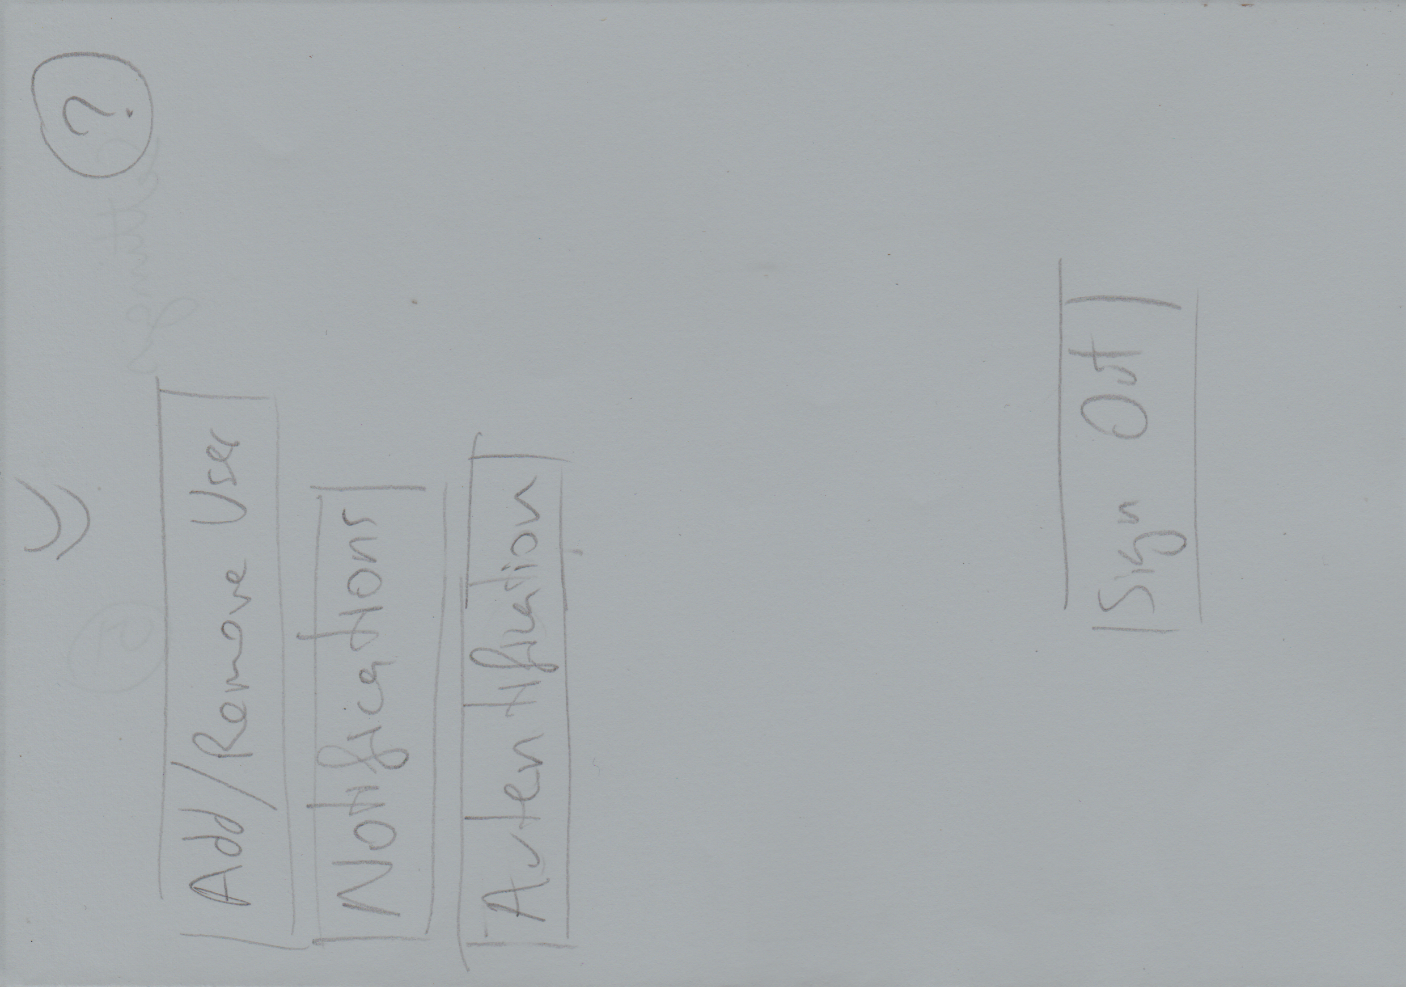 ?
Add/Remove User
Notifications
Autentification
Sign Out